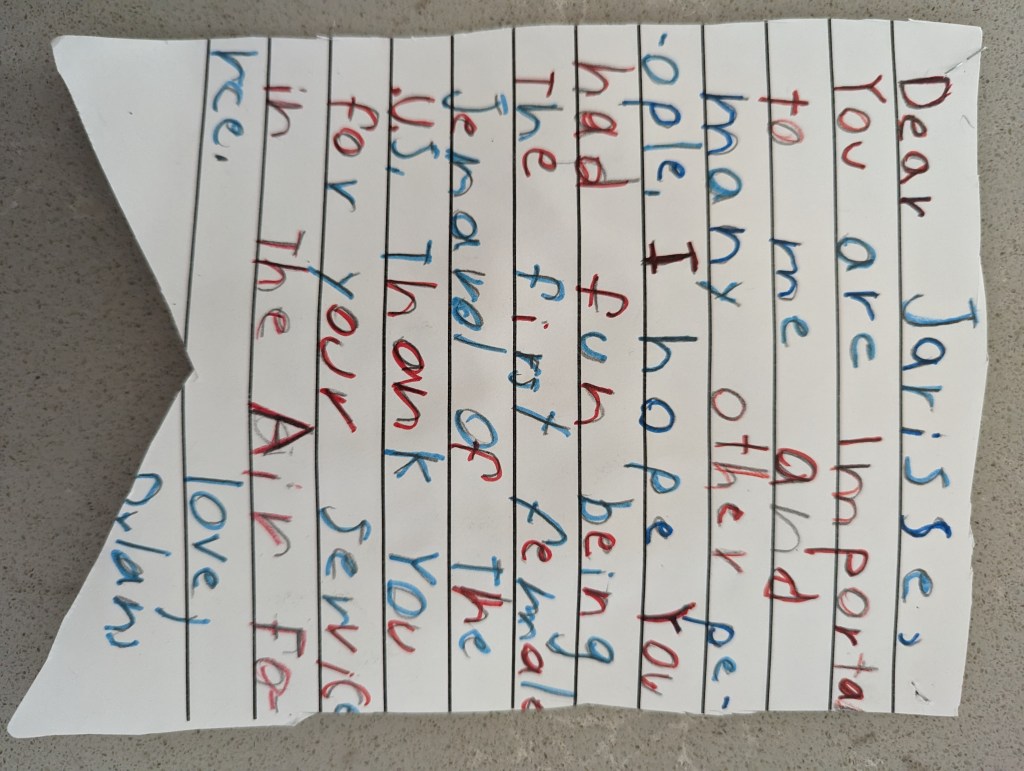 Dear Jarisse,
You are Importa
to me and
many other pe-
-ople. I hope You
had fun being
The first female
Jenaral of The
U.S. Thank You
for your Servic
in The Air Fo-
rce.
love,
Dylan